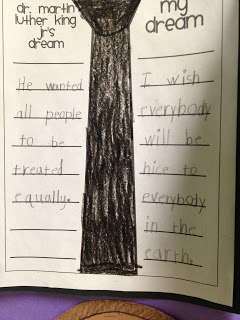 dr. martin
luther king
jr's
dream
He wanted
all people
to be
treated
equally.
my
dream
I wish
everybody
will be
nice to
everybody
in the
earth.